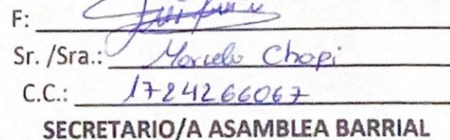 F:
Sr. /Sra.: Marcelo Chapi
C.C.: 1724266067
SECRETARIO/A ASAMBLEA BARRIAL